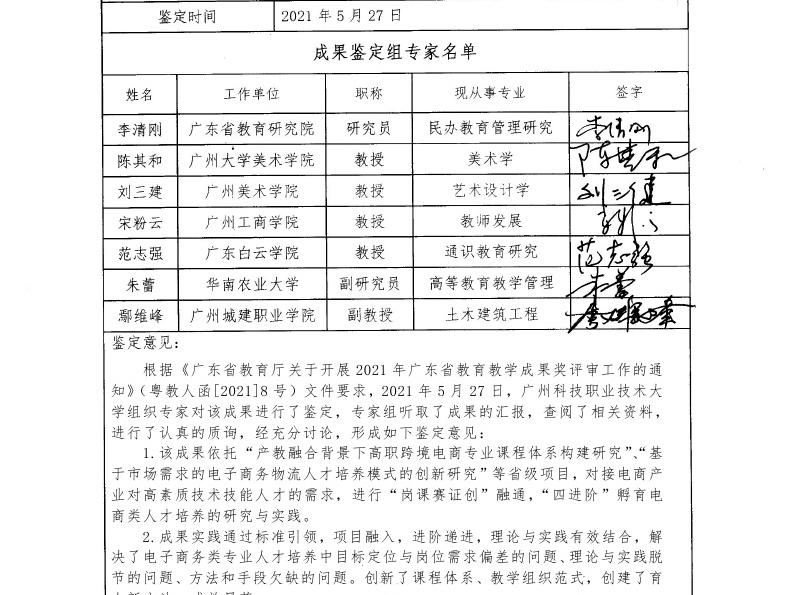 鉴定时间 2021 年 5 月 27 日
成果鉴定组专家名单
姓名 工作单位 职称 现从事专业 签字
李清刚 广东省教育研究院 研究员 民办教育管理研究 李清刚
陈其和 广州大学美术学院 教授 美术学 陈其和
刘三建 广州美术学院 教授 艺术设计学 刘三建
宋粉云 广州工商学院 教授 教师发展
范志强 广东白云学院 教授 通识教育研究 范志强
朱蕾 华南农业大学 副研究员 高等教育教学管理 朱蕾
鄢维峰 广州城建职业学院 副教授 土木建筑工程
鉴定意见：
根据《广东省教育厅关于开展 2021 年广东省教育教学成果奖评审工作的通
知》（粤教人函[2021]8 号）文件要求，2021 年 5 月 27 日，广州科技职业技术大
学组织专家对该成果进行了鉴定，专家组听取了成果的汇报，查阅了相关资料，
进行了认真的质询，经充分讨论，形成如下鉴定意见：
1.该成果依托“产教融合背景下高职跨境电商专业课程体系构建研究”、“基
于市场需求的电子商务物流人才培养模式的创新研究”等省级项目，对接电商产
业对高素质技术技能人才的需求，进行“岗课赛证创”融通，“四进阶”孵育电
商类人才培养的研究与实践。
2.成果实践通过标准引领，项目融入，进阶递进，理论与实践有效结合，解
决了电子商务类专业人才培养中目标定位与岗位需求偏差的问题、理论与实践脱
节的问题、方法和手段欠缺的问题。创新了课程体系、教学组织范式，创建了育